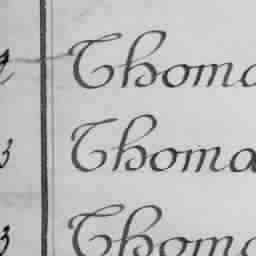 Thoma
3 Thoma
3 Thoma